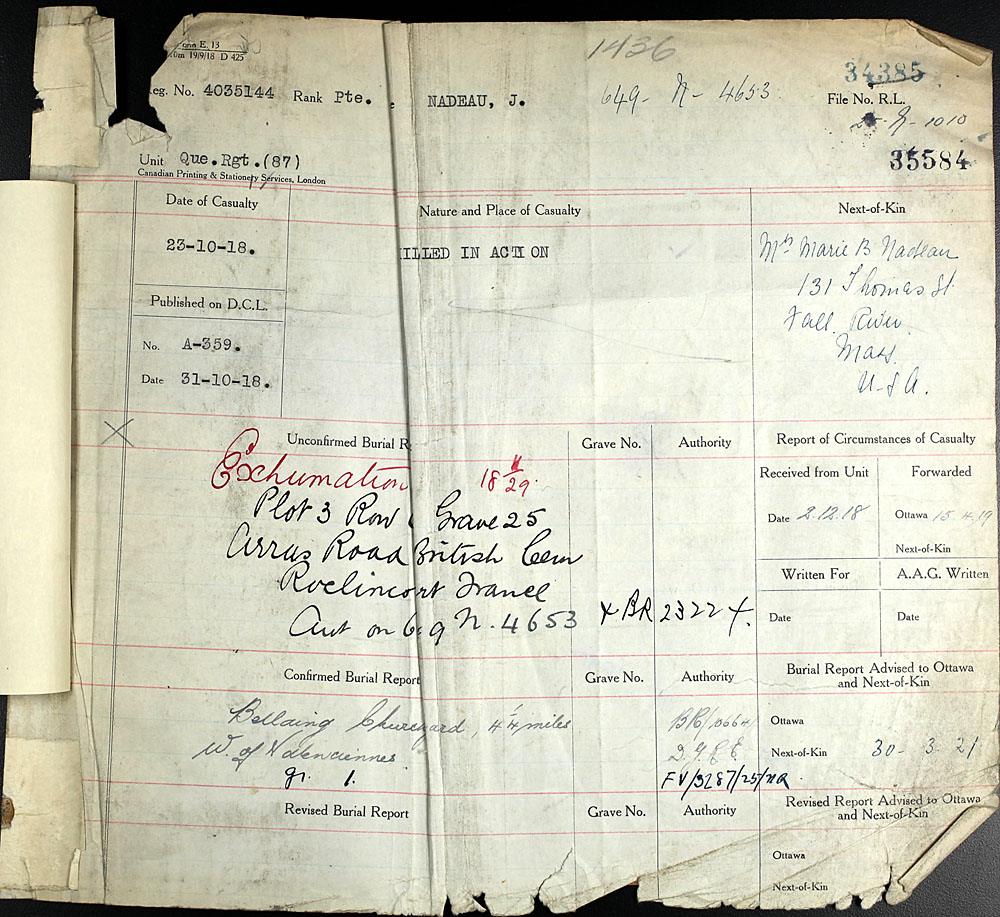 E. 13
19/9/18 D 425
1436
34385
eg. No. 4035144 Rank Pte. NADEAU, J.
649- N- 4653
File No. R.L.
25-N-1010
35584
Unit Que.Rgt.(87)
Canadian Printing & Stationery Services, London
Date of Casualty
Nature and Place of Casualty
Next-of-Kin
23-10-18.
ILLED IN ACTION
Mrs Marie B Nadeau
131 Thomas St.
Fall River
Mass.
U.S.A.
Published on D.C.L.
No. A-359.
Date 31-10-18.
Unconfirmed Burial R
Grave No.
Authority
Report of Circumstances of Casualty
Exhumation 18 11/29.
Plot 3 Row Grave 25
Arras Road British Cem
Roclincourt France
Aut on 649 N. 4653 + BR 2322 +.
Received from Unit
Forwarded
Date 2.12.18
Ottawa 15.4.19
Next-of-Kin
Written For
A.A.G. Written
Date
Date
Confirmed Burial Report
Grave No.
Authority
Burial Report Advised to Ottawa
and Next-of-Kin
Bellaing Churchyard, 4¼ miles
W. of Valenciennes
gr. 1.
Ottawa
Next-of-Kin 30-3-21
Revised Burial Report
Grave No.
Authority
Revised Report Advised to Ottawa
and Next-of-Kin
Ottawa
Next-of-Kin